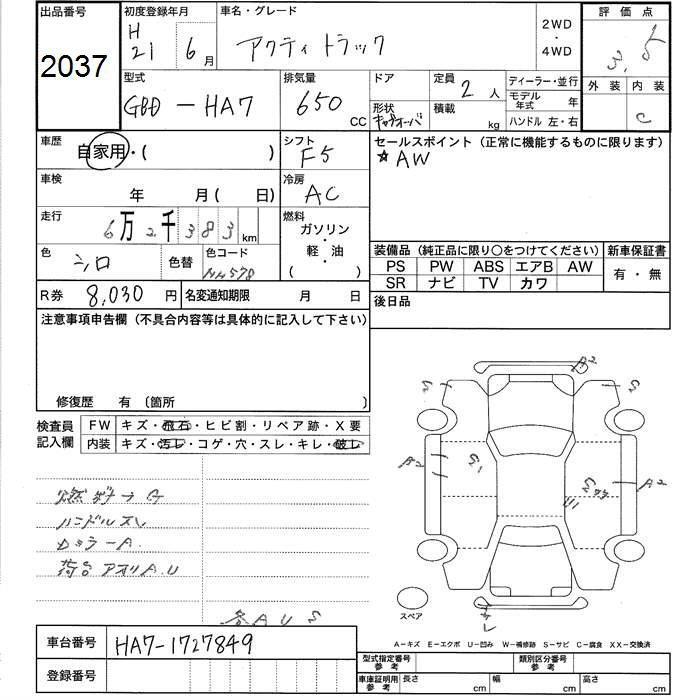 出品番号 初度登録年月 車名・グレード 2WD・4WD 評価点
2037 H21年6月 アクティトラック 3.5
型式 排気量 ドア 定員 2人 ディーラー・並行 外装 内装
GBD-HA7 650 CC 形状 積載 kg モデル年式 年 C
キャブオーバ ハンドル 左・右
車歴 自家用・( ) シフト F5 セールスポイント(正常に機能するものに限ります)
☆AW
車検 年 月( 日) 冷房 AC
走行 6万2千383km 燃料 ガソリン・軽・油( )
色 シロ 色替 色コード NH578
装備品(純正品に限り○をつけてください) 新車保証書
PS PW ABS エアB AW 有・無
SR ナビ TV カワ
R券 8,030円 名変通知期限 月 日 後日品
注意事項申告欄(不具合内容等は具体的に記入して下さい)
修復歴 有 〔箇所 〕
検査員記入欄 FW キズ・飛石・ヒビ割・リペア跡・X要
内装 キズ・汚レ・コゲ・穴・スレ・キレ・破レ
ハンドルスレ
荷台アオリA.U
各AUS
A2
S
S
A2
S1
A2
U1
スペア
A-キズ E-エクボ U-凹み W-補修跡 S-サビ C-腐食 XX-交換済
車台番号 HA7-1727849
登録番号
型式指定番号 参考 類別区分番号 参考
車庫証明用 参考 長さ cm 幅 cm 高さ cm